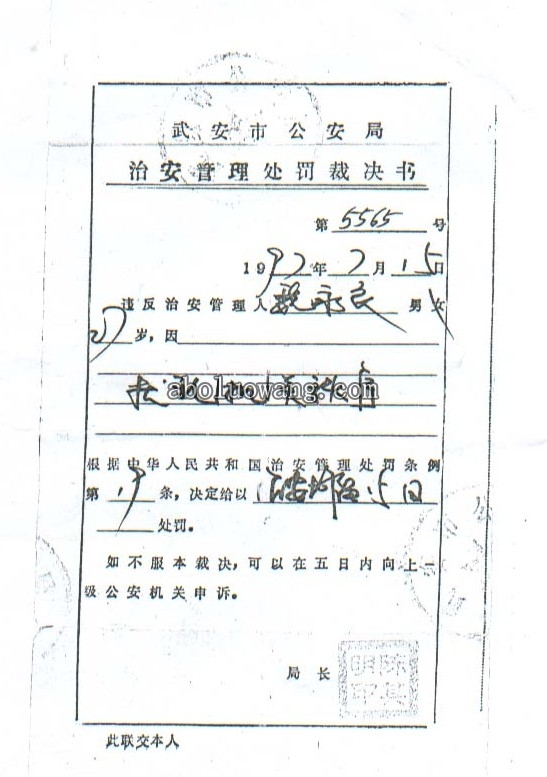 武安市公安局
治安管理处罚裁决书
第5565号
1997年7月15日
违反治安管理人 男女
27岁,因
aboluowang.com
根据中华人民共和国治安管理处罚条例
第19条,决定给以治安拘留15日
处罚。
如不服本裁决,可以在五日内向上一
级公安机关申诉。
局长
陈其明印
此联交本人